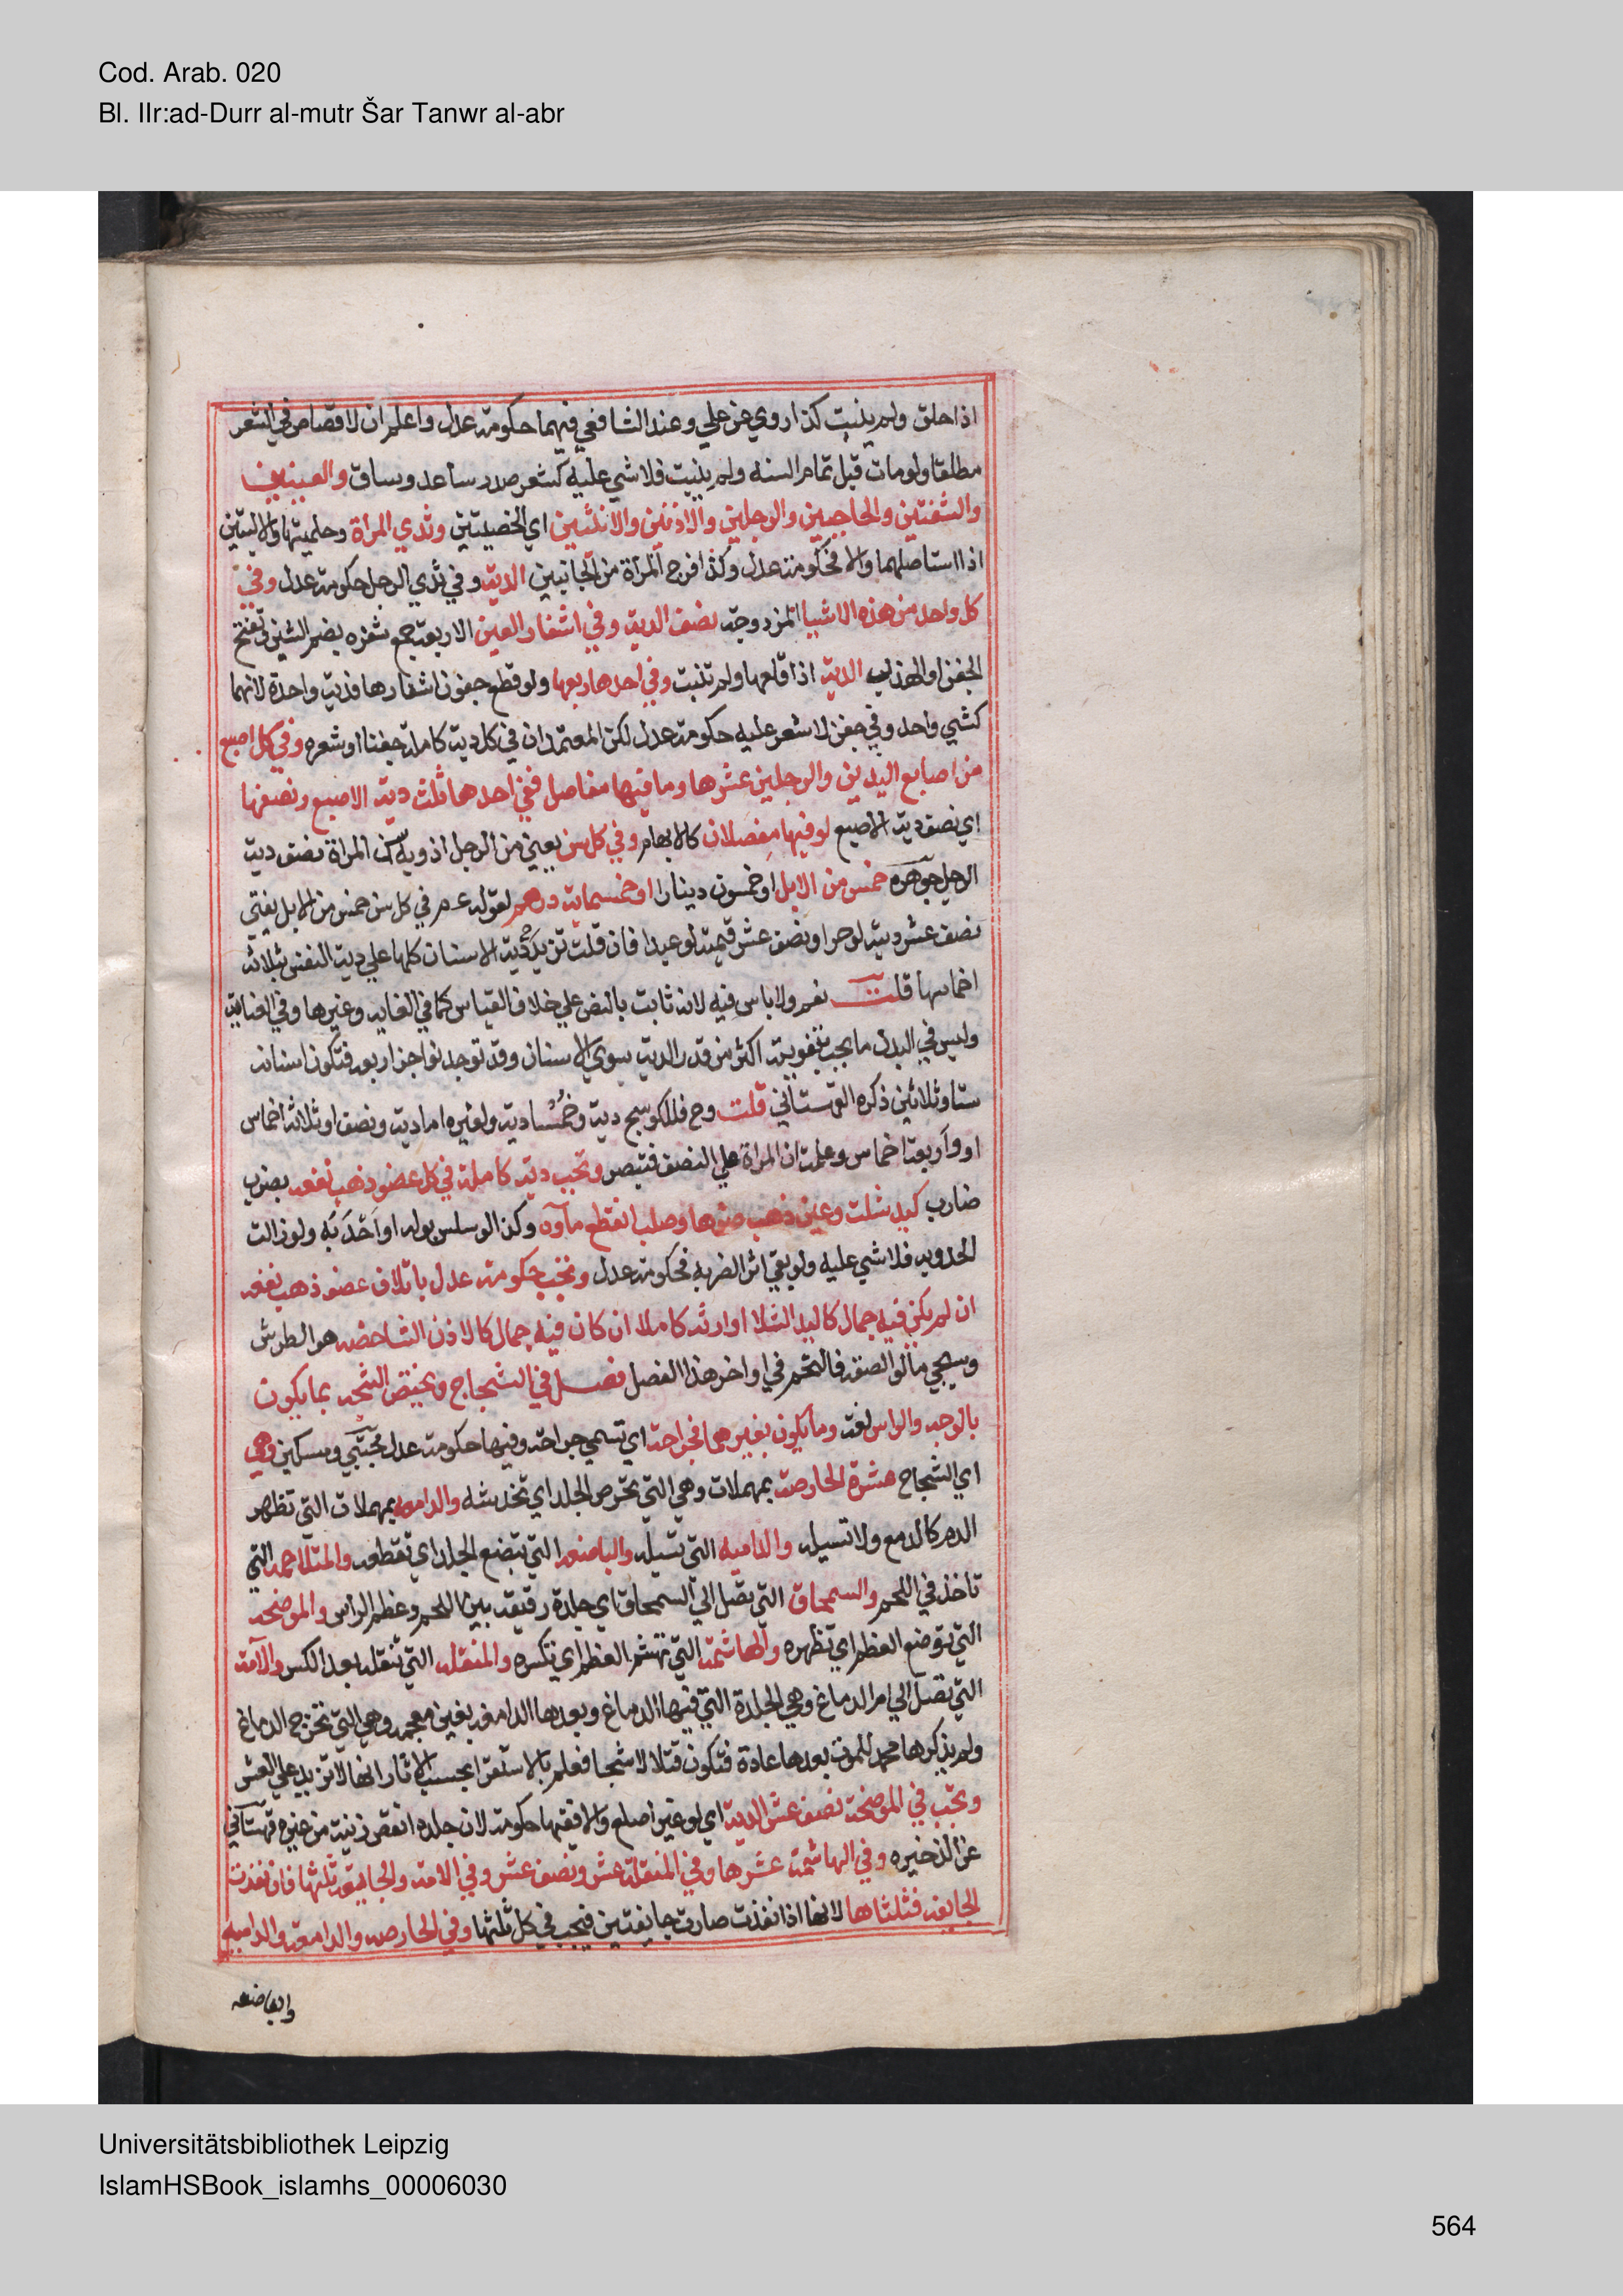 Cod. Arab. 020
Bl. IIr:ad-Durr al-mutr Šar Tanwr al-abr
اذا حلق ولم ينبت كذا روي عن علي وعند الشافعي فيهما حكومة عدل واعلم ان لا قصاص في الشعر
مطلقا ولو مات قبل تمام السنه ولم ينبت فلا شي عليه كشعر صدر وساعد وساق والعينين
والشفتين والحاجبين والرجلين والاذنين والانثيين اي الخصيتين وثدي المراة وحلمتيها والاليتين
اذا استاصلهما والا فحكومة عدل وكذا فرج المراة من الجانبين الدية وفي ثدي الرجل حكومة عدل وفي
كل واحد من هذه الاشيا المزدوجة نصف الدية وفي اشفار العين الاربعة جمع شفره بضم الشين وتفتح
الجفن او الهدب الدية اذا قلعها ولم تنبت وفي احدها ربعها ولو قطع جفون اشفارها فدية واحدة لانهما
كشي واحد وفي جفن لا شعر عليه حكومة عدل لكن المعتمد ان في كل دية كاملة جفنا او شعره وفي كل اصبع
من اصابع اليدين والرجلين عشرها وما فيها مفاصل ففي احدهما ثلث دية الاصبع ونصفها
اي نصف دية الاصبع لو فيها مفصلان كالابهام وفي كل سن يعني من الرجل اذ دية سن المراة نصف دية
الرجل جوهره خمس من الابل او خمسون دينارا او خمسماية درهم لقوله ع م في كل سن خمس من الابل يعني
نصف عشر دية لو حرا ونصف عشر قيمته لو عبدا فان قلت تزيد دية الاسنان كلها علي دية النفس بثلاثة
اخماسها قلت نعم ولا باس فيه لانه ثابت بالنص علي خلاف القياس كما في الغايه وغيرها وفي العناية
وليس في البدن ما يجب بتفويته اكثر من قدر الدية سوي الاسنان وقد توجد نواجز اربعه فتكون اسنانه
ستا وثلاثين ذكره القهستاني قلت وح فللكوسج دية وخمسا دية ولغيره اما دية ونصف او ثلاثة اخماس
او واربعة اخماس وعلمت ان المراة علي النصف فتبصر وتجب دية كاملة في كل عضو ذهب نفعه بضرب
ضارب كيد شلت وعين ذهب ضوها وصلب انقطع مآوه وكذا لو سلس بوله او احدبه ولو زالت
الحدوبه فلا شي عليه ولو بقي اثر الضربه فحكومة عدل وتجب حكومة عدل باتلاف عضو ذهب نفعه
ان لم يكن فيه جمال كاليد الشلا او ارشه كاملا ان كان فيه جمال كالاذن الشاخصه هو الطرش
وسيجي ما لو الصقه فالتحم في اواخر هذا الفصل فصل في الشجاج وتختص الشجه بما يكون
بالوجه والراس لغة وما يكون بغيرهما فجراحة اي تسمي جراحة وفيها حكومة عدل مجتبي ومسكين وهي
اي الشجاج عشرة الحارصة بمهملات وهي التي تحرص الجلد اي تخدشه والدامعه بمهملات التي تظهر
الدم كالدمع ولا تسيله والداميه التي تسيله والباضعه التي تبضع الجلد اي تقطعه والمتلاحمه التي
تاخذ في اللحم والسمحاق التي تصل الي السمحاق اي جلدة رقيقة بين اللحم وعظم الراس والموضحه
التي توضح العظم اي تظهره والهاشمة التي تهشم العظم اي تكسره والمنقله التي تنقله بعد الكسر والآمة
التي تصل الي ام الدماغ وهي الجلدة التي فيها الدماغ وبعدها الدامغه بغين معجمه وهي التي تخرج الدماغ
ولم يذكرها محمد للموت بعدها عادة فتكون قتلا لا شجا فعلم بالاستقرا بحسب الاثار انها لا تزيد علي العشر
وتجب في الموضحة نصف عشر الدية اي لو غير اصلع والا ففيها حكومة لان جلده انقص زينة من غيره قهستاني
عن الذخيره وفي الهاشمة عشرها وفي المنقلة عشر ونصف عشر وفي الامة والجايفة ثلثها فان نفذت
الجايفه فثلثاها لانها اذا نفذت صارت جايفتين فيجب في كل ثلثها وفي الحارصه والدامعه والداميه
والباضعه
Universitätsbibliothek Leipzig
IslamHSBook_islamhs_00006030
564